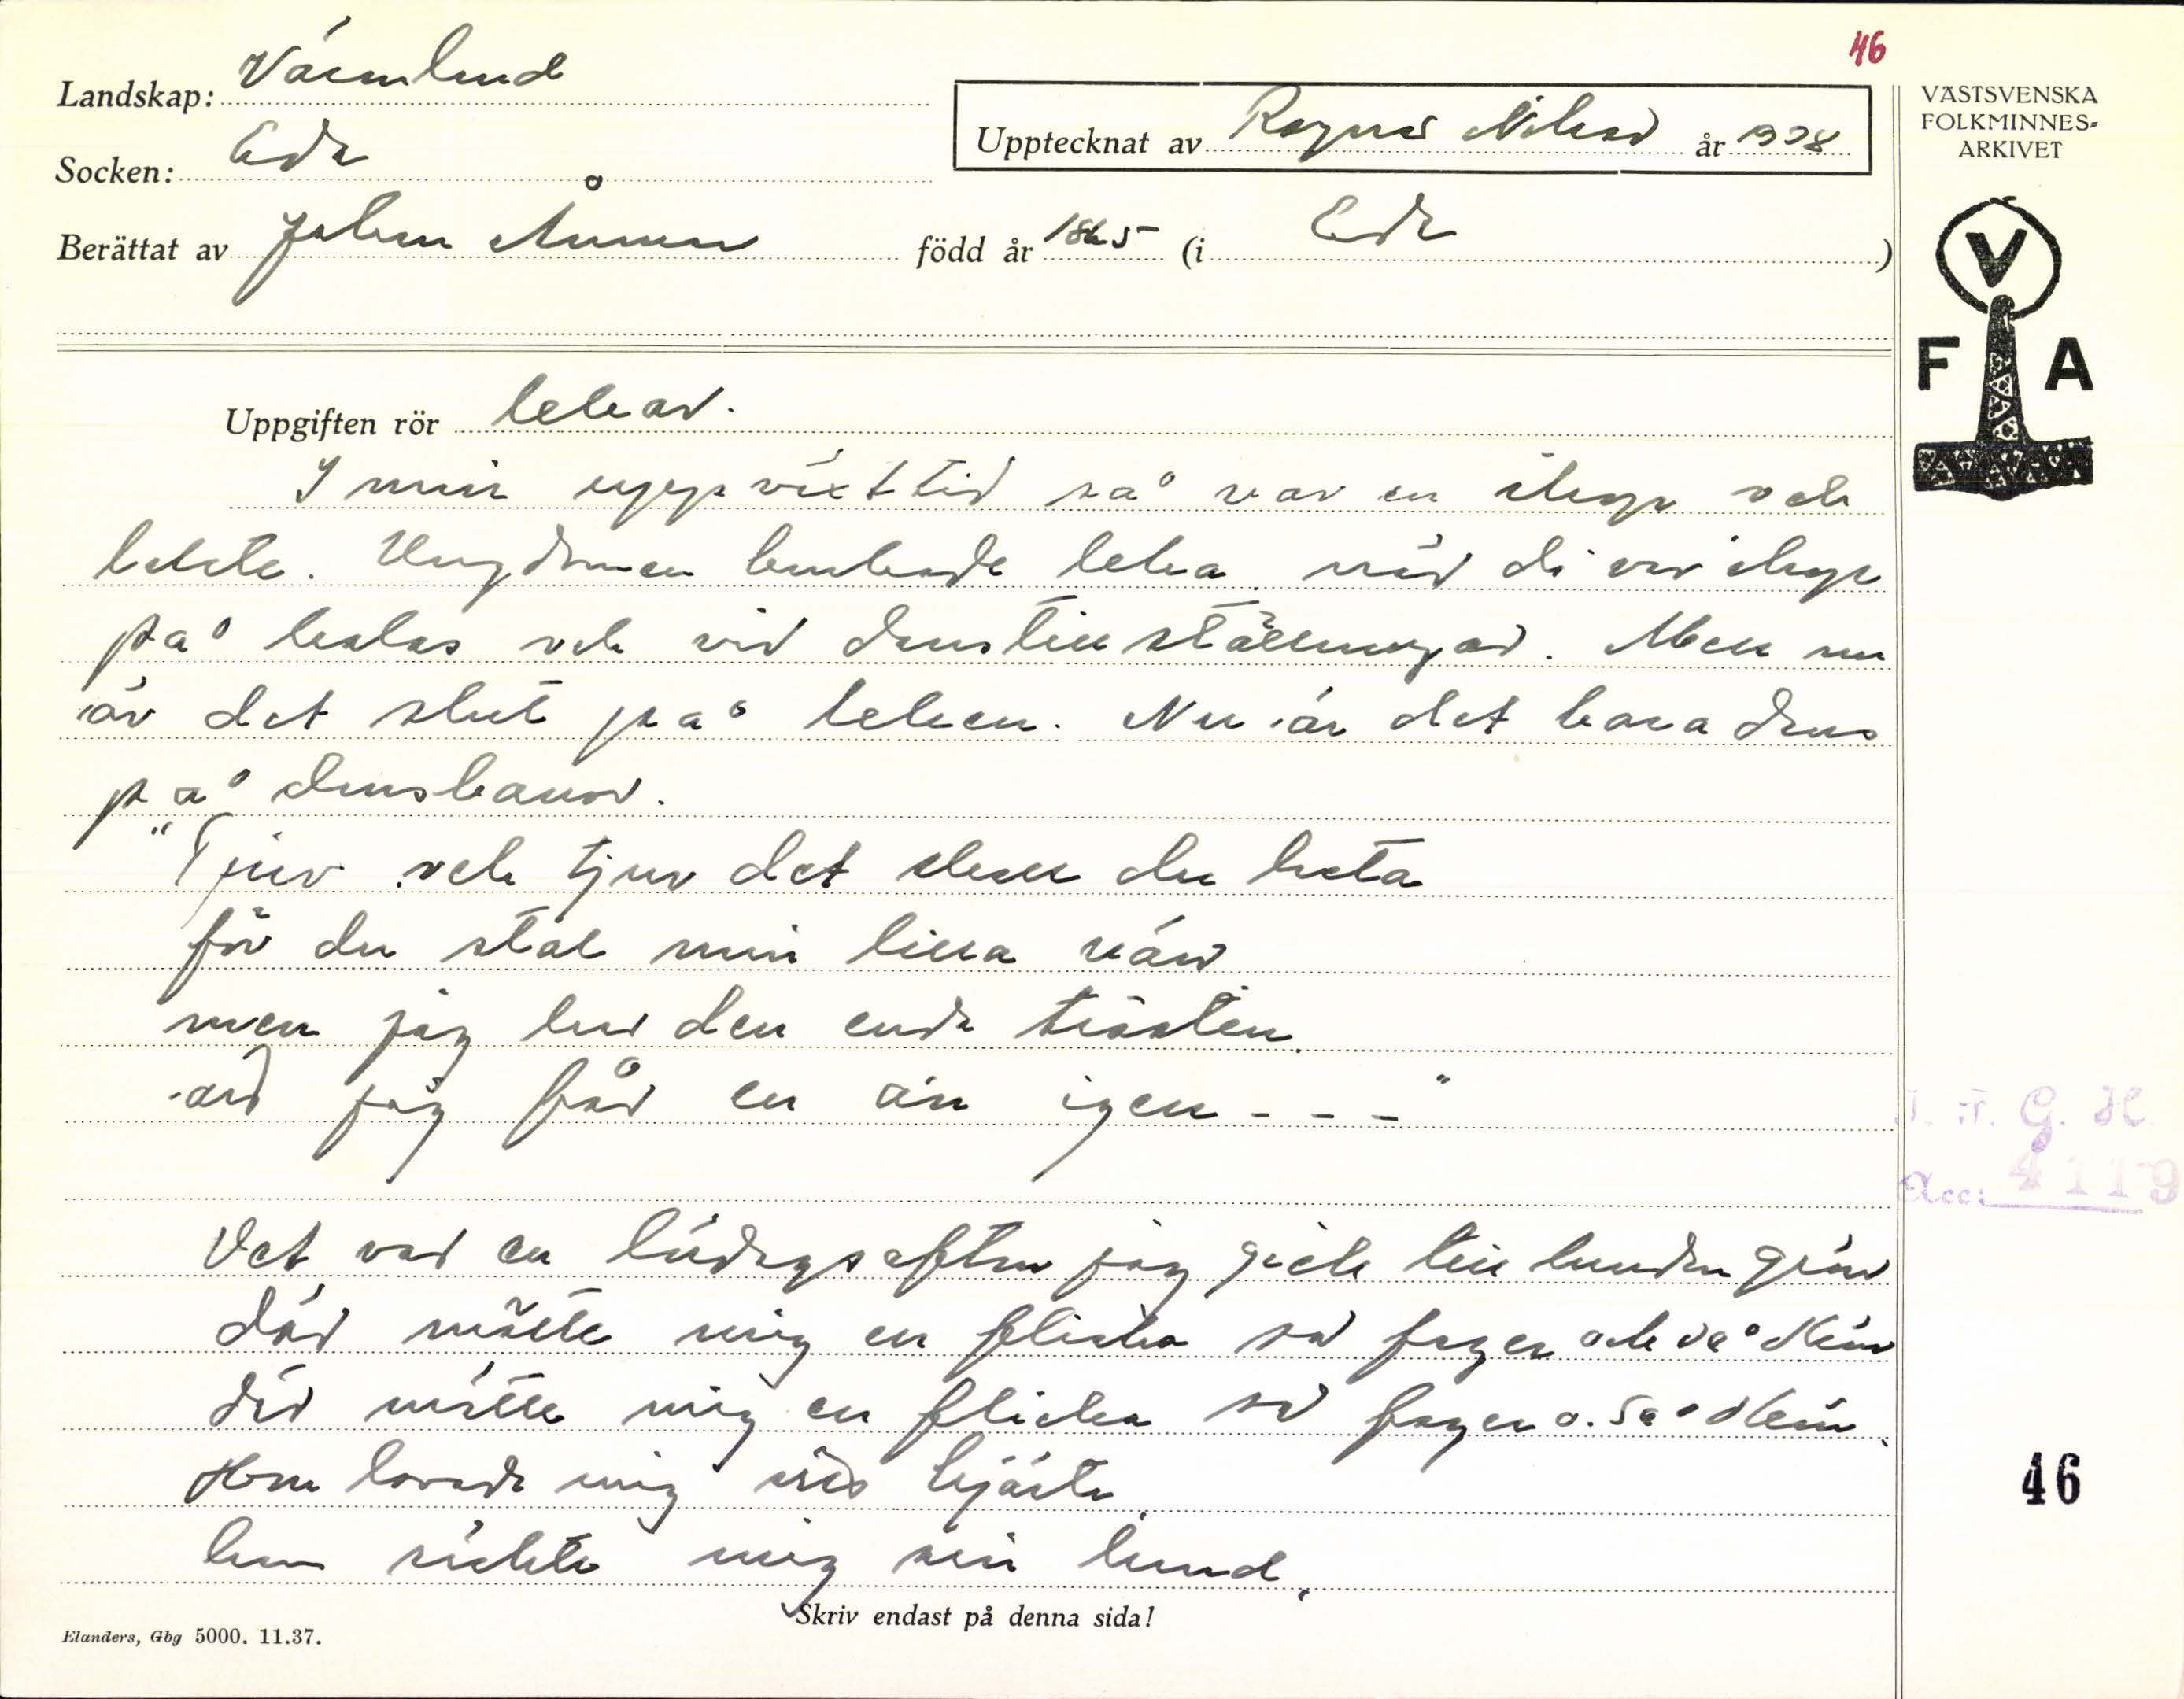 46
Landskap: Värmland
Socken: Eda
Upptecknat av Ragnar Nilsson år 1938
Berättat av Johan född år 1865 (i Eda)
VÄSTSVENSKA
FOLKMINNES-
ARKIVET
V
F A
Uppgiften rör lekar.
I min uppväxttid så var en ihop och
lekte. Ungdomen brukade leka när di var ihop
på kalas och vid danstillställningar. Men nu
är det slut på leken. Nu är det bara dans
på dansbanor.
"Tjuv och tjuv det skall du heta
för du stal min lilla vän
men jag har den enda trösten
att jag får en än igen - - -"
Det var en lördagsafton jag gick till lunden grön
där mötte mig en flicka så fager och så skön
där mötte mig en flicka så fager o. så skön.
Hon lovade mig sitt hjärta
hon räckte mig sin hand.
Skriv endast på denna sida!
Elanders, Gbg 5000. 11.37.
I. F. G. H.
Acc: 4119
46